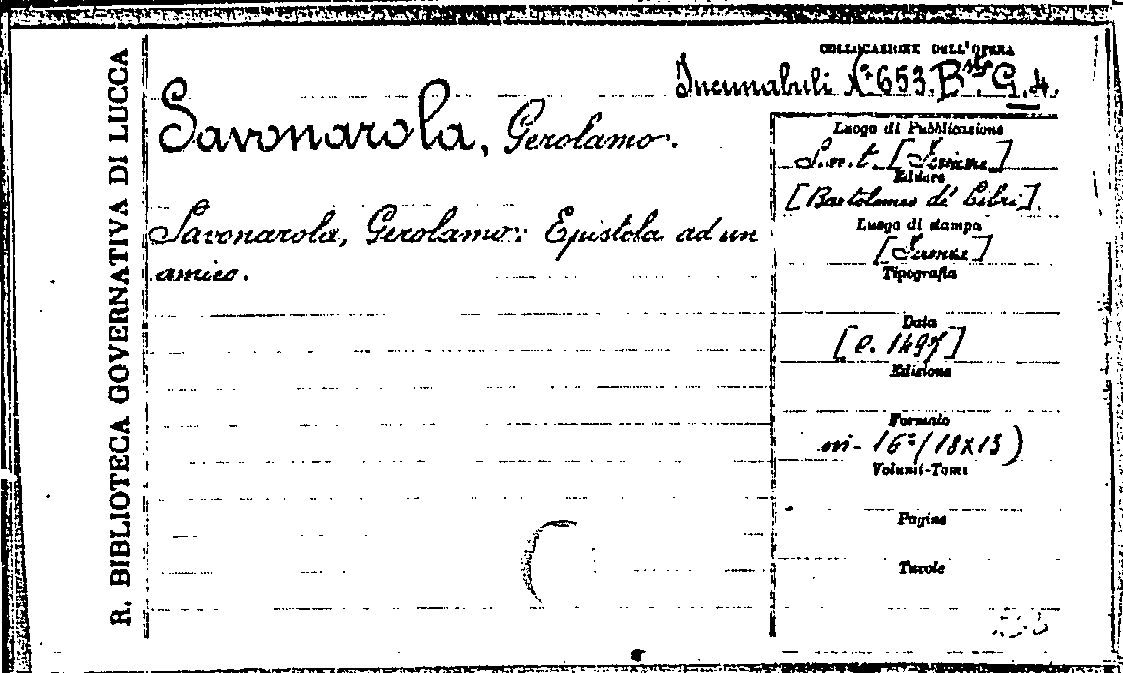 R. BIBLIOTECA GOVERNATIVA DI LUCCA
COLLOCAZIONE DELL'OPERA
Incunabuli N.° 653. Bta. G. 4.
Savonarola, Gerolamo.
Savonarola, Gerolamo: Epistola ad un
amico.
Luogo di Pubblicazione
S. n. t. [Firenze]
Editore
[Bartolomeo di Libri].
Luogo di stampa
[Firenze]
Tipografia
Data
[c. 1497]
Edizione
Formato
in-16° (18x13)
Volumi-Tomi
Pagine
Tavole